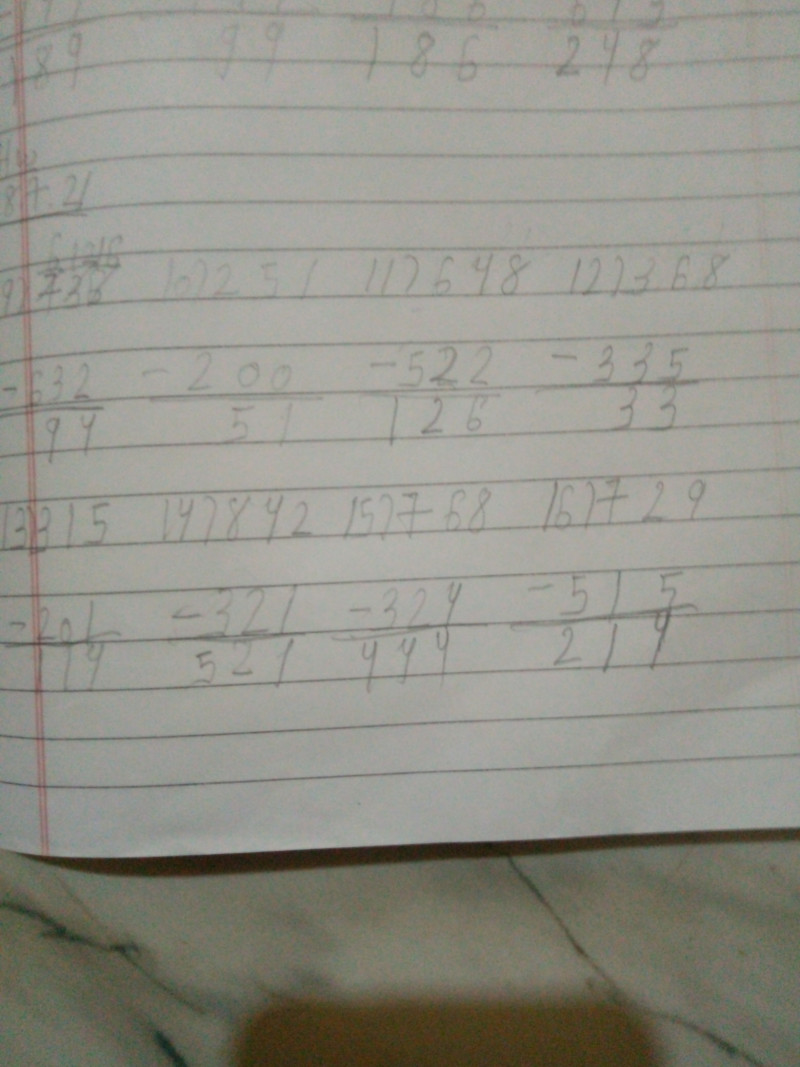 189 99 186 248
Hw
87.21
61216
9) 736 10) 251 11) 648 12) 368
-632 -200 -522 -335
94 51 126 33
13) 315 14) 842 15) 768 16) 729
-201 -321 -324 -515
114 521 444 214